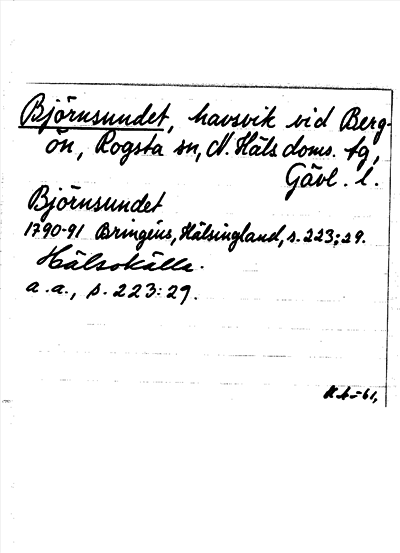 Björnsundet, havsvik vid Berg-
ön, Rogsta sn, N. Häls doms. tg,
Gävl. l.
Björnsundet
1790-91 Bringéus, Hälsingland, s. 223:29.
Hälsokälla.
a. a., s. 223:29.